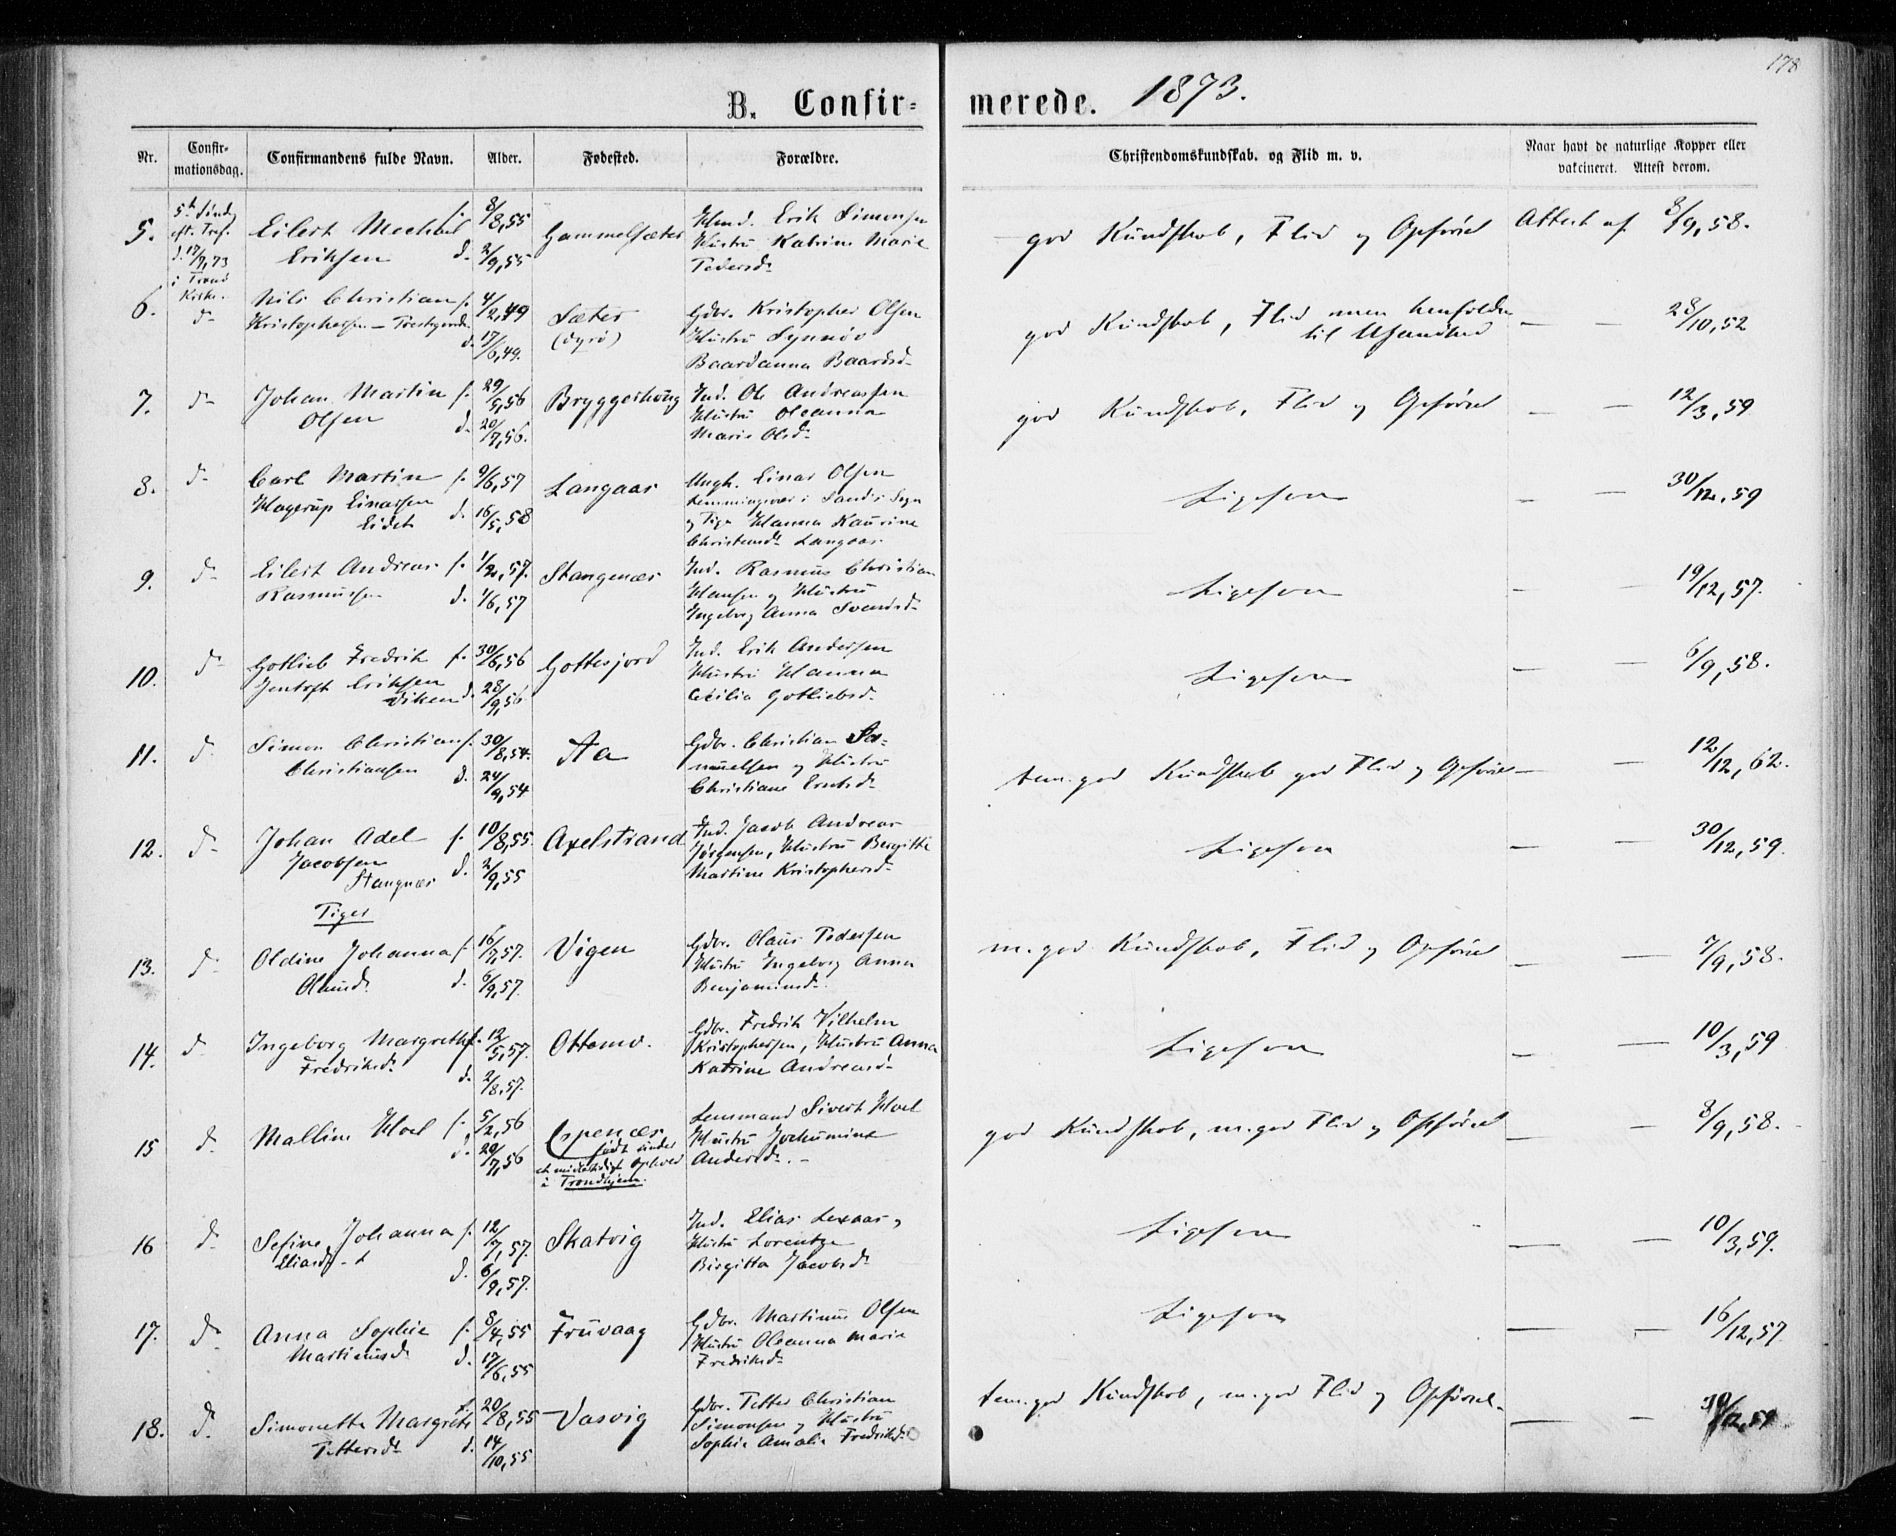 178
B. Confir- merede. 1873.
Nr. Confirmationsdag. Confirmandens fulde Navn. Alder. Fødested. Forældre. Christendomskundskab. og Flid m. v. Naar havt de naturlige Kopper eller vakcineret. Attest derom.
5. 5te Sønd. eft. Tref. d. 17/7,73 i Tranø Kirke.
Eilert Mechael f. 8/8,55
Eriksen d. 2/9,55
Gammelsæter
Hmd. Erik Simonsen
Hustru Katrine Marie
Pedersdr
god Kundskab, Flid og Opførsel Attest af 8/9,58.
6. do
Nils Christian f. 4/2,49
Kristophersen d. 17/6,49.
Sæter
(Dyrø)
Gdbr. Kristopher Olsen
Hustru Synnøv
Baardanna Baardsdr
god Kundskab, Flid men
til Usandhed — — 28/10,52
7. do
Johan Martin f. 29/5,56
Olsen d. 20/7,56.
Bryggerhaug
Ind. Ole Andreassen
Hustru Oleanna
Marie Olsdr
god Kundskab, Flid og Opførsel — — 12/3,59
8. do
Carl Martin f. 9/6,57
Hagerup Einarsen d. 16/5,58
Eidet
Langaas
Ungk. Einar Olsen
Lemmingvær i Sands Sogn
og Pige Hanna Kaurine
Christensdr Langaas
Ligesom — — 30/12,59
9. do
Eilert Andreas f. 1/2,57.
Rasmussen d. 1/6,57
Stangenæs
Ind. Rasmus Christian
Hansen og Hustru
Ingeborg Anna Svendsdr
Ligesom — — 19/12,57.
10. do
Gotlieb Fredrik f. 30/6,56
Jentoft Eriksen d. 28/9,56
Viken
Gottesjord
Ind. Erik Andersen
Hustru Hanna
Cecilia Gotliebsd.
Ligesom — — 6/9,58.
11. do
Simon Christian f. 30/8,54.
Christiansen d. 24/9,54
Aa
Gdbr. Christian Sa-
muelsen og Hustru
Christiane Erntsdr
tem. god Kundskab god Flid og Opførsel — — 12/12,62.
12. do
Johan Adel f. 10/8,55.
Jacobsen d. 2/9,55
Stangnæs
Axelstrand
Ind. Jacob Andreas
Jørgensen, Hustru Bergitte
Martine Kristophersdr
Ligesom — — 30/12,59.
Piger
13. do
Oldine Johanna f. 16/7,57.
Olausd. d. 6/9,57.
Vigen
Gdbr. Olaus Pedersen
Hustru Ingeborg Anna
Benjaminsdr
m. god Kundskab, Flid og Opførsel — — 7/9,58.
14. do
Ingeborg Margrethe f. 12/5,57.
Fredriksdr d. 2/8,57.
Ottemo.
Gdbr. Fredrik Vilhelm
Kristophersen, Hustru Anna
Katrine Andreasdr
Ligesom — — 10/3,59
15 do
Malline Hoel f. 5/2,56
d. 20/7,56
Espenæs
født under
et midlertidigt Ophold
i Trondhjem.
Lensmand Sivert Hoel
Hustru Jochumine
Andersdr. -
god Kundskab, m. god Flid og Opførsel — — 8/9,58.
16 do
Sefine Johanna f. 12/7,57.
Eliasdr d. 6/9,57.
Skatvig
Ind. Elias Lexaas,
Hustru Lorentze
Birgitta Jacobsdr
Ligesom — — 10/3,59.
17. do
Anna Sophie f. 8/4,55
Martinusd. d. 17/6,55
Fruvaag
Gdbr. Martinus Olsen
Hustru Oleanna Marie
Fredriksdr
Ligesom — — 16/12,57
18. do
Simonette Margrete f. 20/8,55
Pettersdr d. 14/10,55
Vasvig
Gdbr. Petter Christian
Simonsen og Hustru
Sophie Amalie Fredriksd.
tem. god Kundskab, m. god Flid og Opførsel. — — 30/12,59